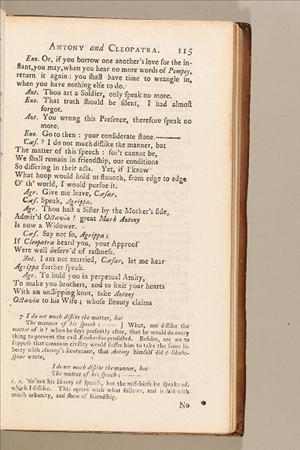 ANTONY and CLEOPATRA. 115
Eno. Or, if you borrow one another's love for the in-
stant, you may, when you hear no more words of Pompey,
return it again: you shall have time to wrangle in,
when you have nothing else to do.
Ant. Thou art a Soldier, only speak no more.
Eno. That truth should be silent, I had almost
forgot.
Ant. You wrong this Presence, therefore speak no
more.
Eno. Go to then: your considerate stone.
Cæs. 7 I do not much dislike the manner, but
The matter of this speech: for't cannot be,
We shall remain in friendship, our conditions
So differing in their acts. Yet, if I knew
What hoop would hold us staunch, from edge to edge
O' th' world, I would pursue it.
Agr. Give me leave, Cæsar.
Cæs. Speak, Agrippa.
Agr. Thou hast a Sister by the Mother's side,
Admir'd Octavia! great Mark Antony
Is now a Widower.
Cæs. Say not so, Agrippa;
If Cleopatra heard you, your Approof
Were well deserv'd of rashness.
Ant. I am not married, Cæsar, let me hear
Agrippa further speak.
Agr. To hold you in perpetual Amity,
To make you brothers, and to knit your hearts
With an unslipping knot, take Antony
Octavia to his Wife; whose Beauty claims
7 I do not much dislike the matter, but
The manner of his speech: ] What, not dislike the
matter of it? when he says presently after, that he would do every
thing to prevent the evil Enobarbus predicted. Besides, are we to
suppose that common civility would suffer him to take the same li-
berty with Antony's lieutenant, that Antony himself did? Shake-
spear wrote,
I do not much dislike the manner, but
The matter of his speech:
i. e. 'tis not his liberty of speech, but the mischiefs he speaks of,
which I dislike. This agrees with what follows, and is said with
much urbanity, and show of friendship.
No